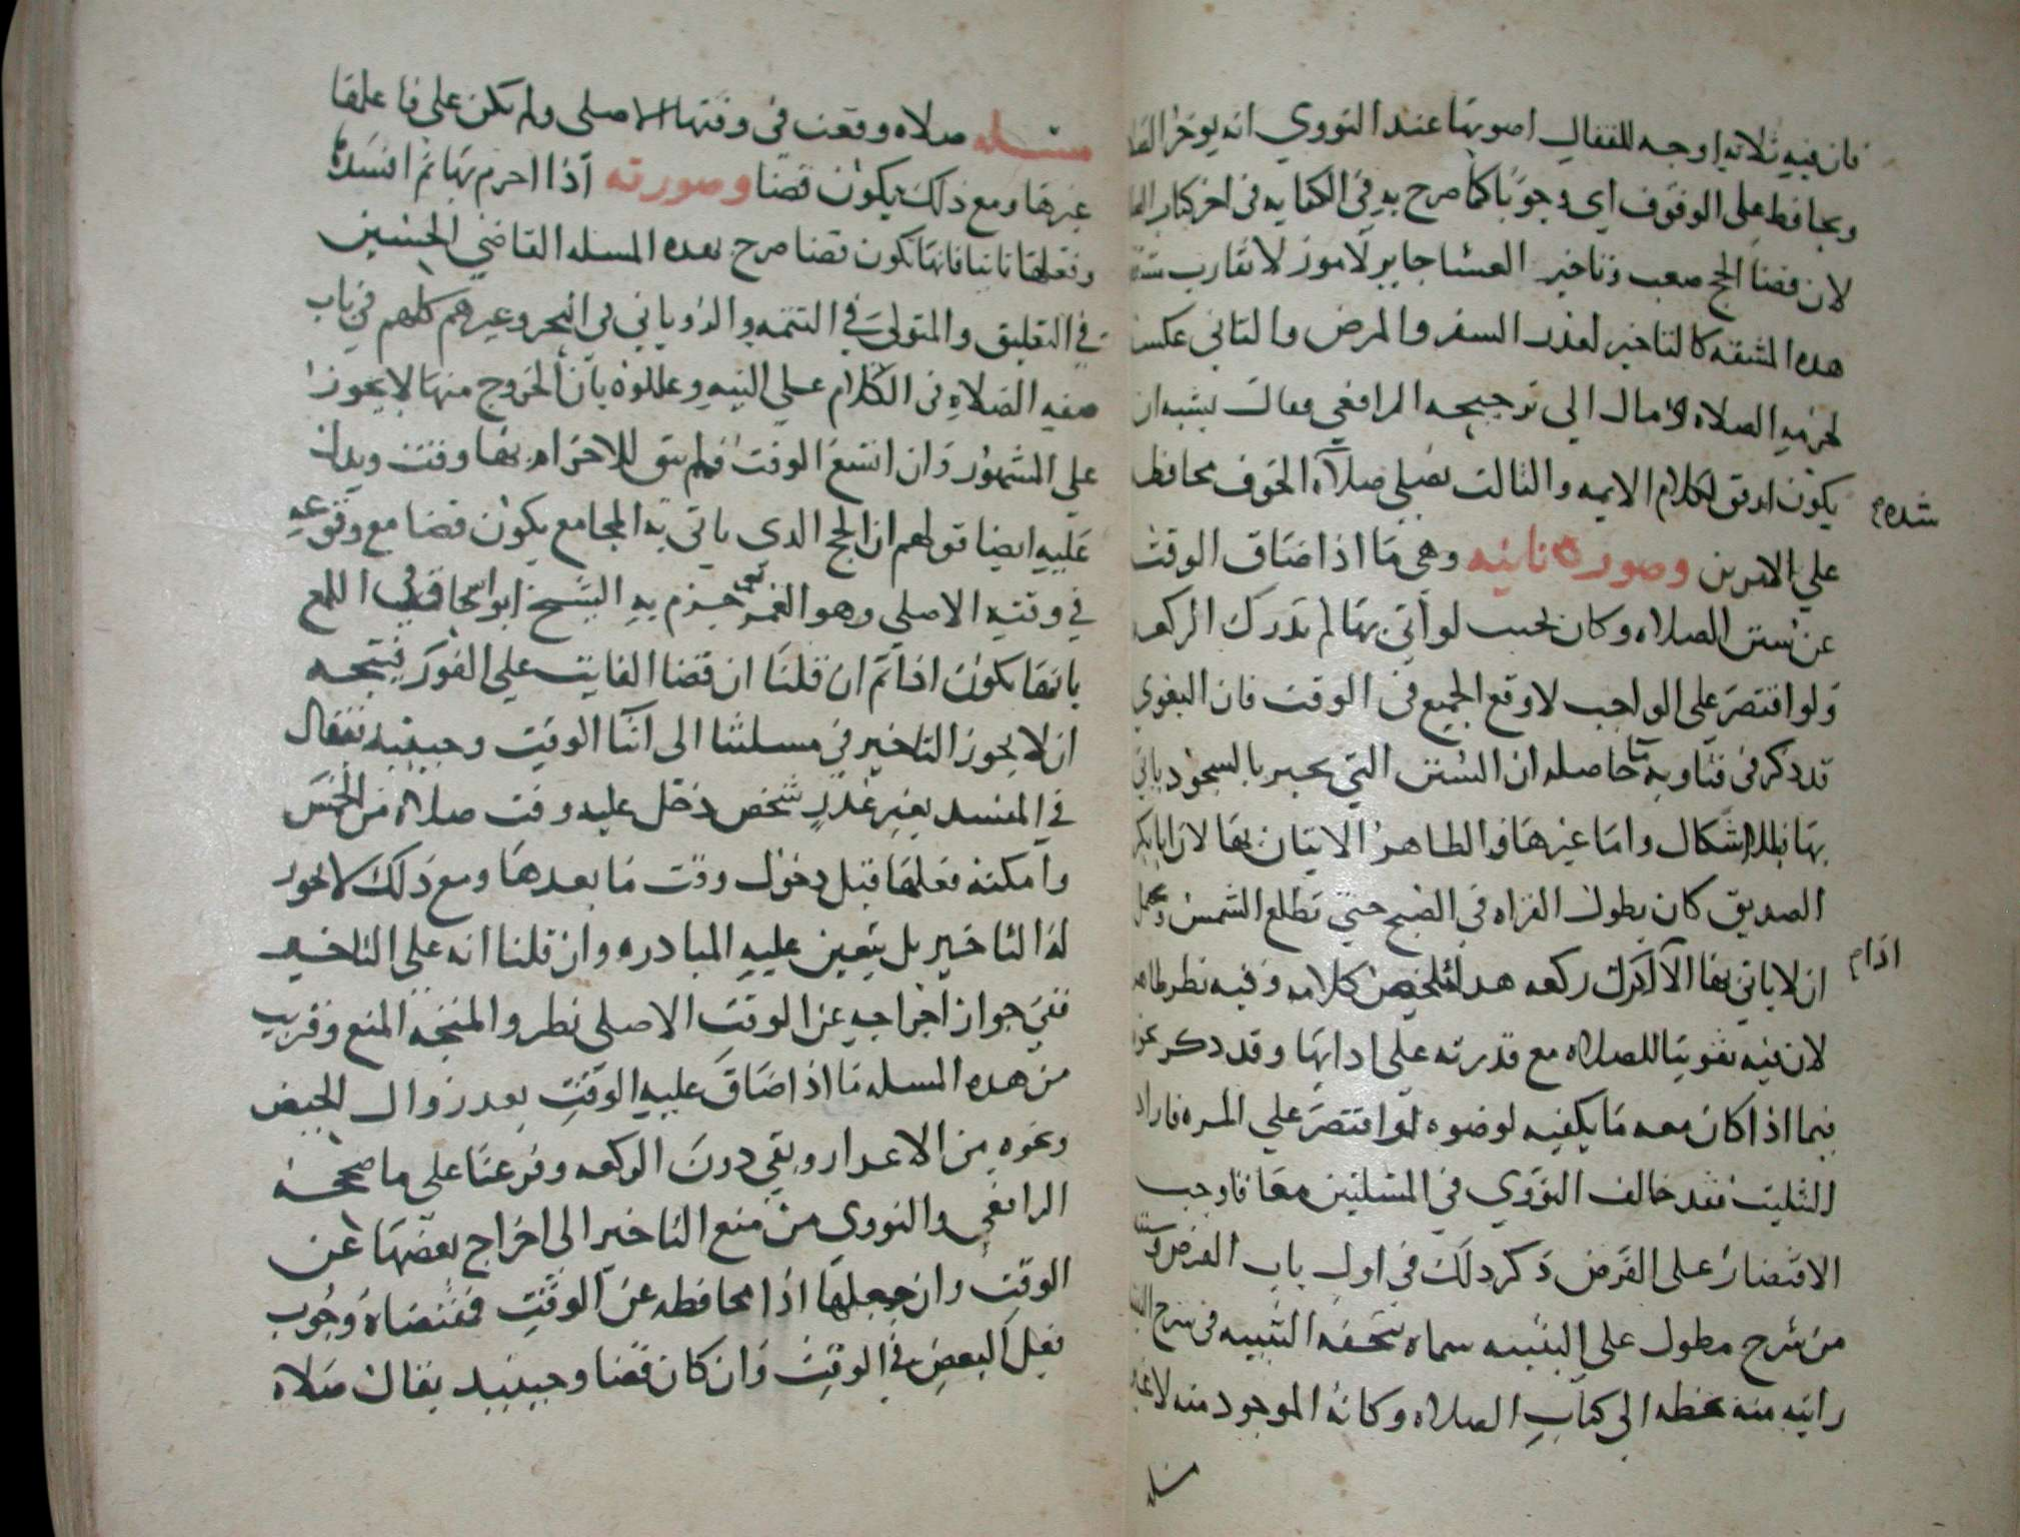 فان فيه ثلاثه اوجه للقفال اصوبها عند النووي انه يوخر
ويحافظ على الوقوف اي وجوبا كما صرح به في الكفايه في اخر كتاب
لان قضا الحج صعب وتاخير العشا جايز لامور لا تقارب
هده المشقه كالتاخير لعذر السفر والمرض والثاني عكس
لحرمه الصلاه ومال الى ترجيحه الرافعي فقال يشبه ان
يكون اوفق لكلام الايمه والثالث يصلي صلاة الخوف محافظ
شده
على الامرين وصوره ثانيه وهي ما اذا ضاق الوقت
عن سنن الصلاه وكان بحيث لو اتى بها لم يدرك الركعه
ولو اقتصر على الواجب لاوقع الجميع في الوقت فان البغوي
قد ذكر في فتاويه ما حاصله ان السنن التي تجبر بالسجود ياتي
بها بلا اشكال واما غيرها فالظاهر الاتيان بها لان ابا بكر
الصديق كان يطول القراه في الصبح حتى تطلع الشمس
ان لا ياتي بها الا ادرك ركعه هدا ملخص كلامه وفيه نظر
اذا م
لان فيه تفويتا للصلاه مع قدرته على ادايها وقد ذكر
فيما اذا كان معه ما يكفيه لوضوه لو اقتصر على المره فاراد
التثليث فقد خالف النووي في المسئلتين معا فاوجب
الاقتصار على الفرض ذكر دلك في اول باب الفرض
من شرح مطول على التنبيه سماه تحفه التنبيه في شرح
رايته منه بخطه الى كتاب الصلاه وكانه الموجود منه لا
مسله
مسئله صلاه وقعت في وقتها الاصلي ولم يكن على فاعلها
غيرها ومع ذلك يكون قضا وصورته اذا احرم بها ثم افسدها
وفعلها ثانيا فانها تكون قضا صرح بهده المسله القاضي الحسين
في التعليق والمتولي في التتمه والروياني في البحر وغيرهم كلهم في باب
صفه الصلاه في الكلام على النيه وعللوه بان الخروج منها لا يجوز
على المشهور وان اتسع الوقت فلم يبق للاحرام بها وقت ويدل
عليه ايضا قولهم ان الحج الدى ياتي به المجامع يكون قضا مع وقوعه
في وقته الاصلي وهو العمر نعم جزم به الشيخ ابو اسحاق في اللمع
بانها تكون ادا ثم ان قلنا ان قضا الفايت على الفور فيتجه
ان لا يجوز التاخير في مسلتنا الى اثنا الوقت وحينيد فيقال
في المفسد بغير عذر شخص دخل عليه وقت صلاة من الخمس
وامكنه فعلها قبل دخول وقت ما بعدها ومع ذلك لا يجوز
له التاخير بل يتعين عليه المبادره وان قلنا انه على التاخير
ففي جواز اخراجه عن الوقت الاصلي نظر والمتجه المنع وقريب
من هده المسله ما اذا ضاق عليه الوقت بعد زوال الحيض
ونحوه من الاعدار وبقي دون الركعه وفرعنا على ما صححه
الرافعي والنووى من منع التاخير الى اخراج بعضها عن
الوقت وان جعلها اذا محافظه عن الوقت فمقتضاه وجوب
فعل البعض في الوقت وان كان قضا وحينيد يقال صلاه